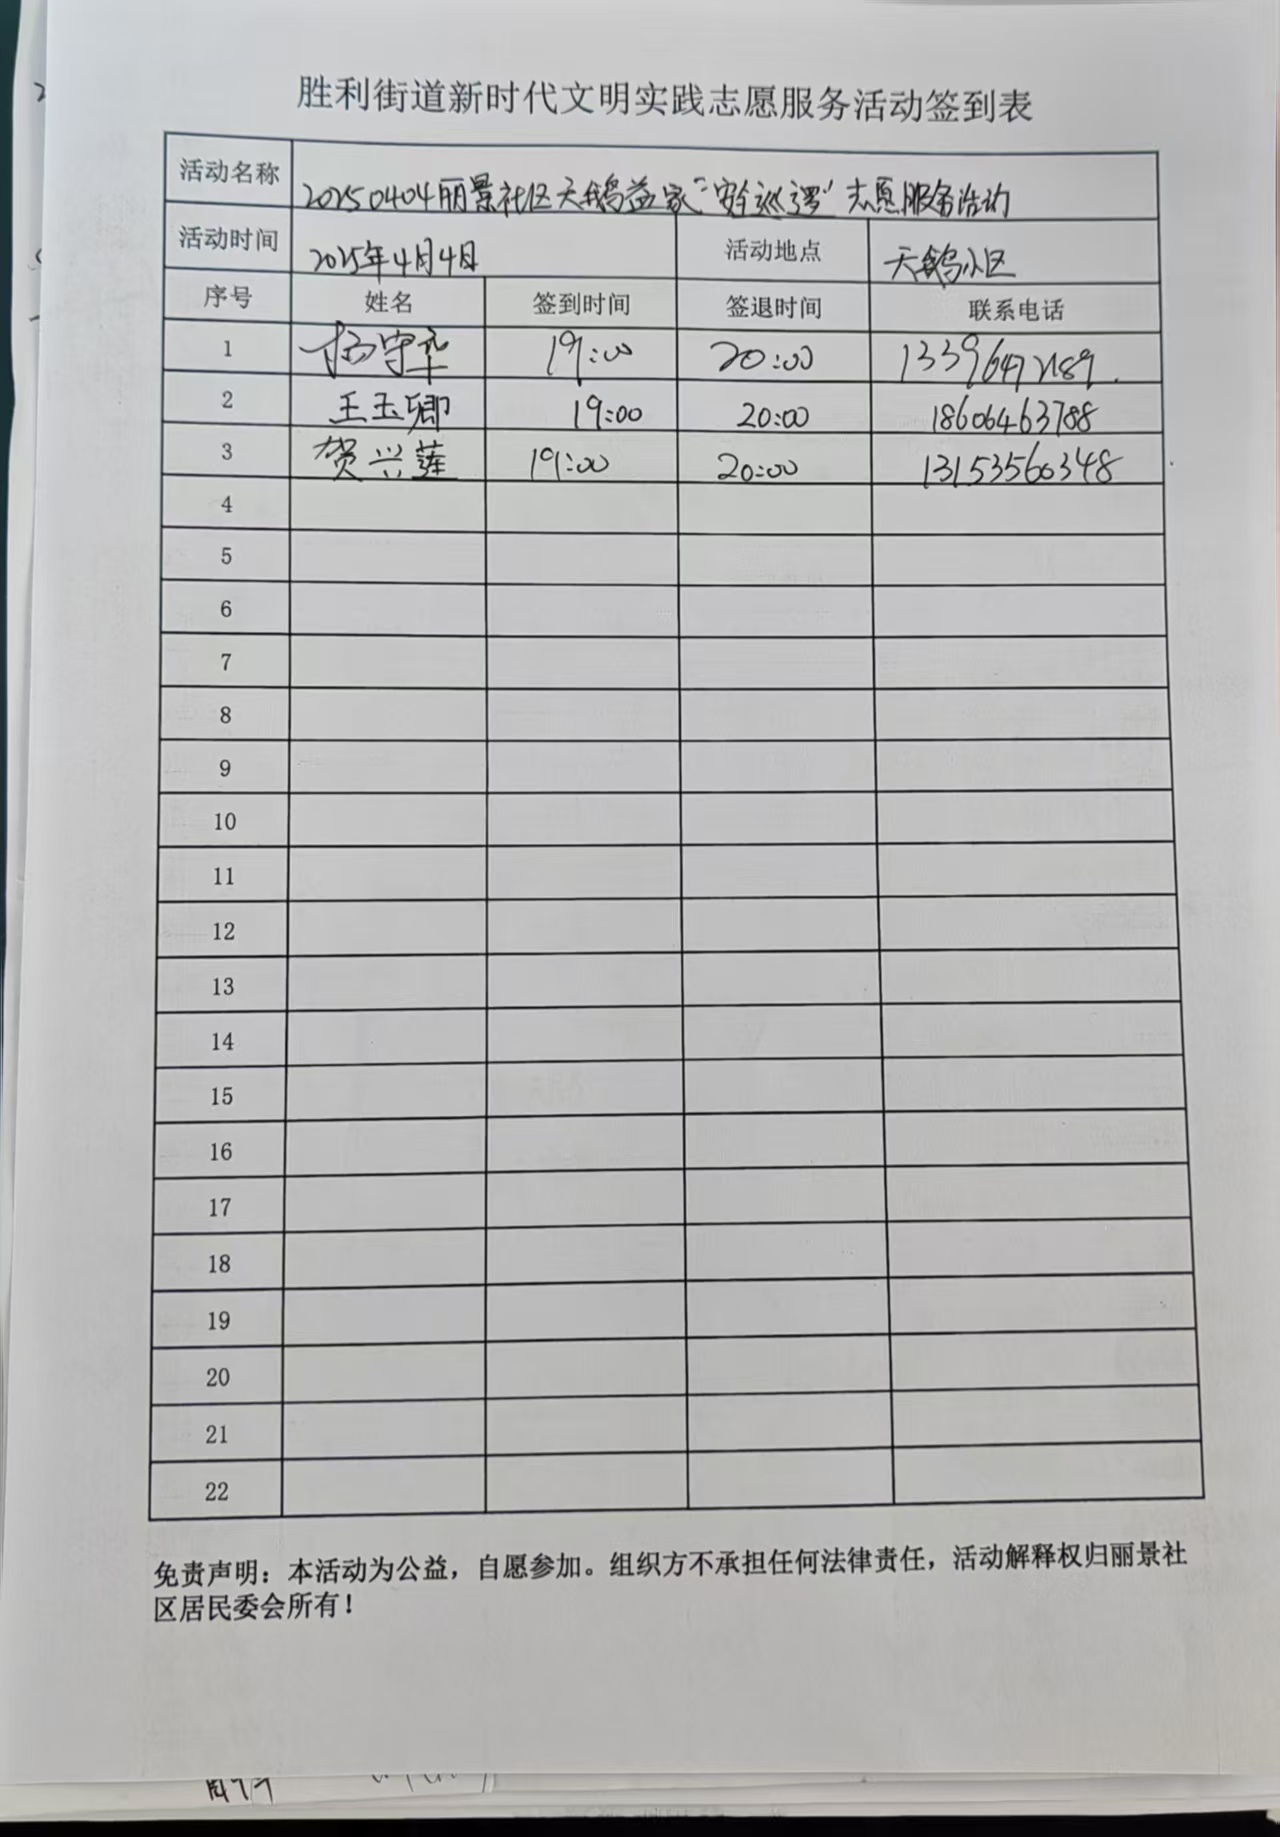 胜利街道新时代文明实践志愿服务活动签到表
活动名称 20250404丽景社区天鹅益家“安全巡逻”志愿服务活动
活动时间 2025年4月4日 活动地点 天鹅小区
序号 姓名 签到时间 签退时间 联系电话
1 杨守华 19:00 20:00
2 王玉卿 19:00 20:00 18606463788
3 贺兴莲 19:00 20:00 13153560348
4
5
6
7
8
9
10
11
12
13
14
15
16
17
18
19
20
21
22
免责声明：本活动为公益，自愿参加。组织方不承担任何法律责任，活动解释权归丽景社
区居民委会所有！